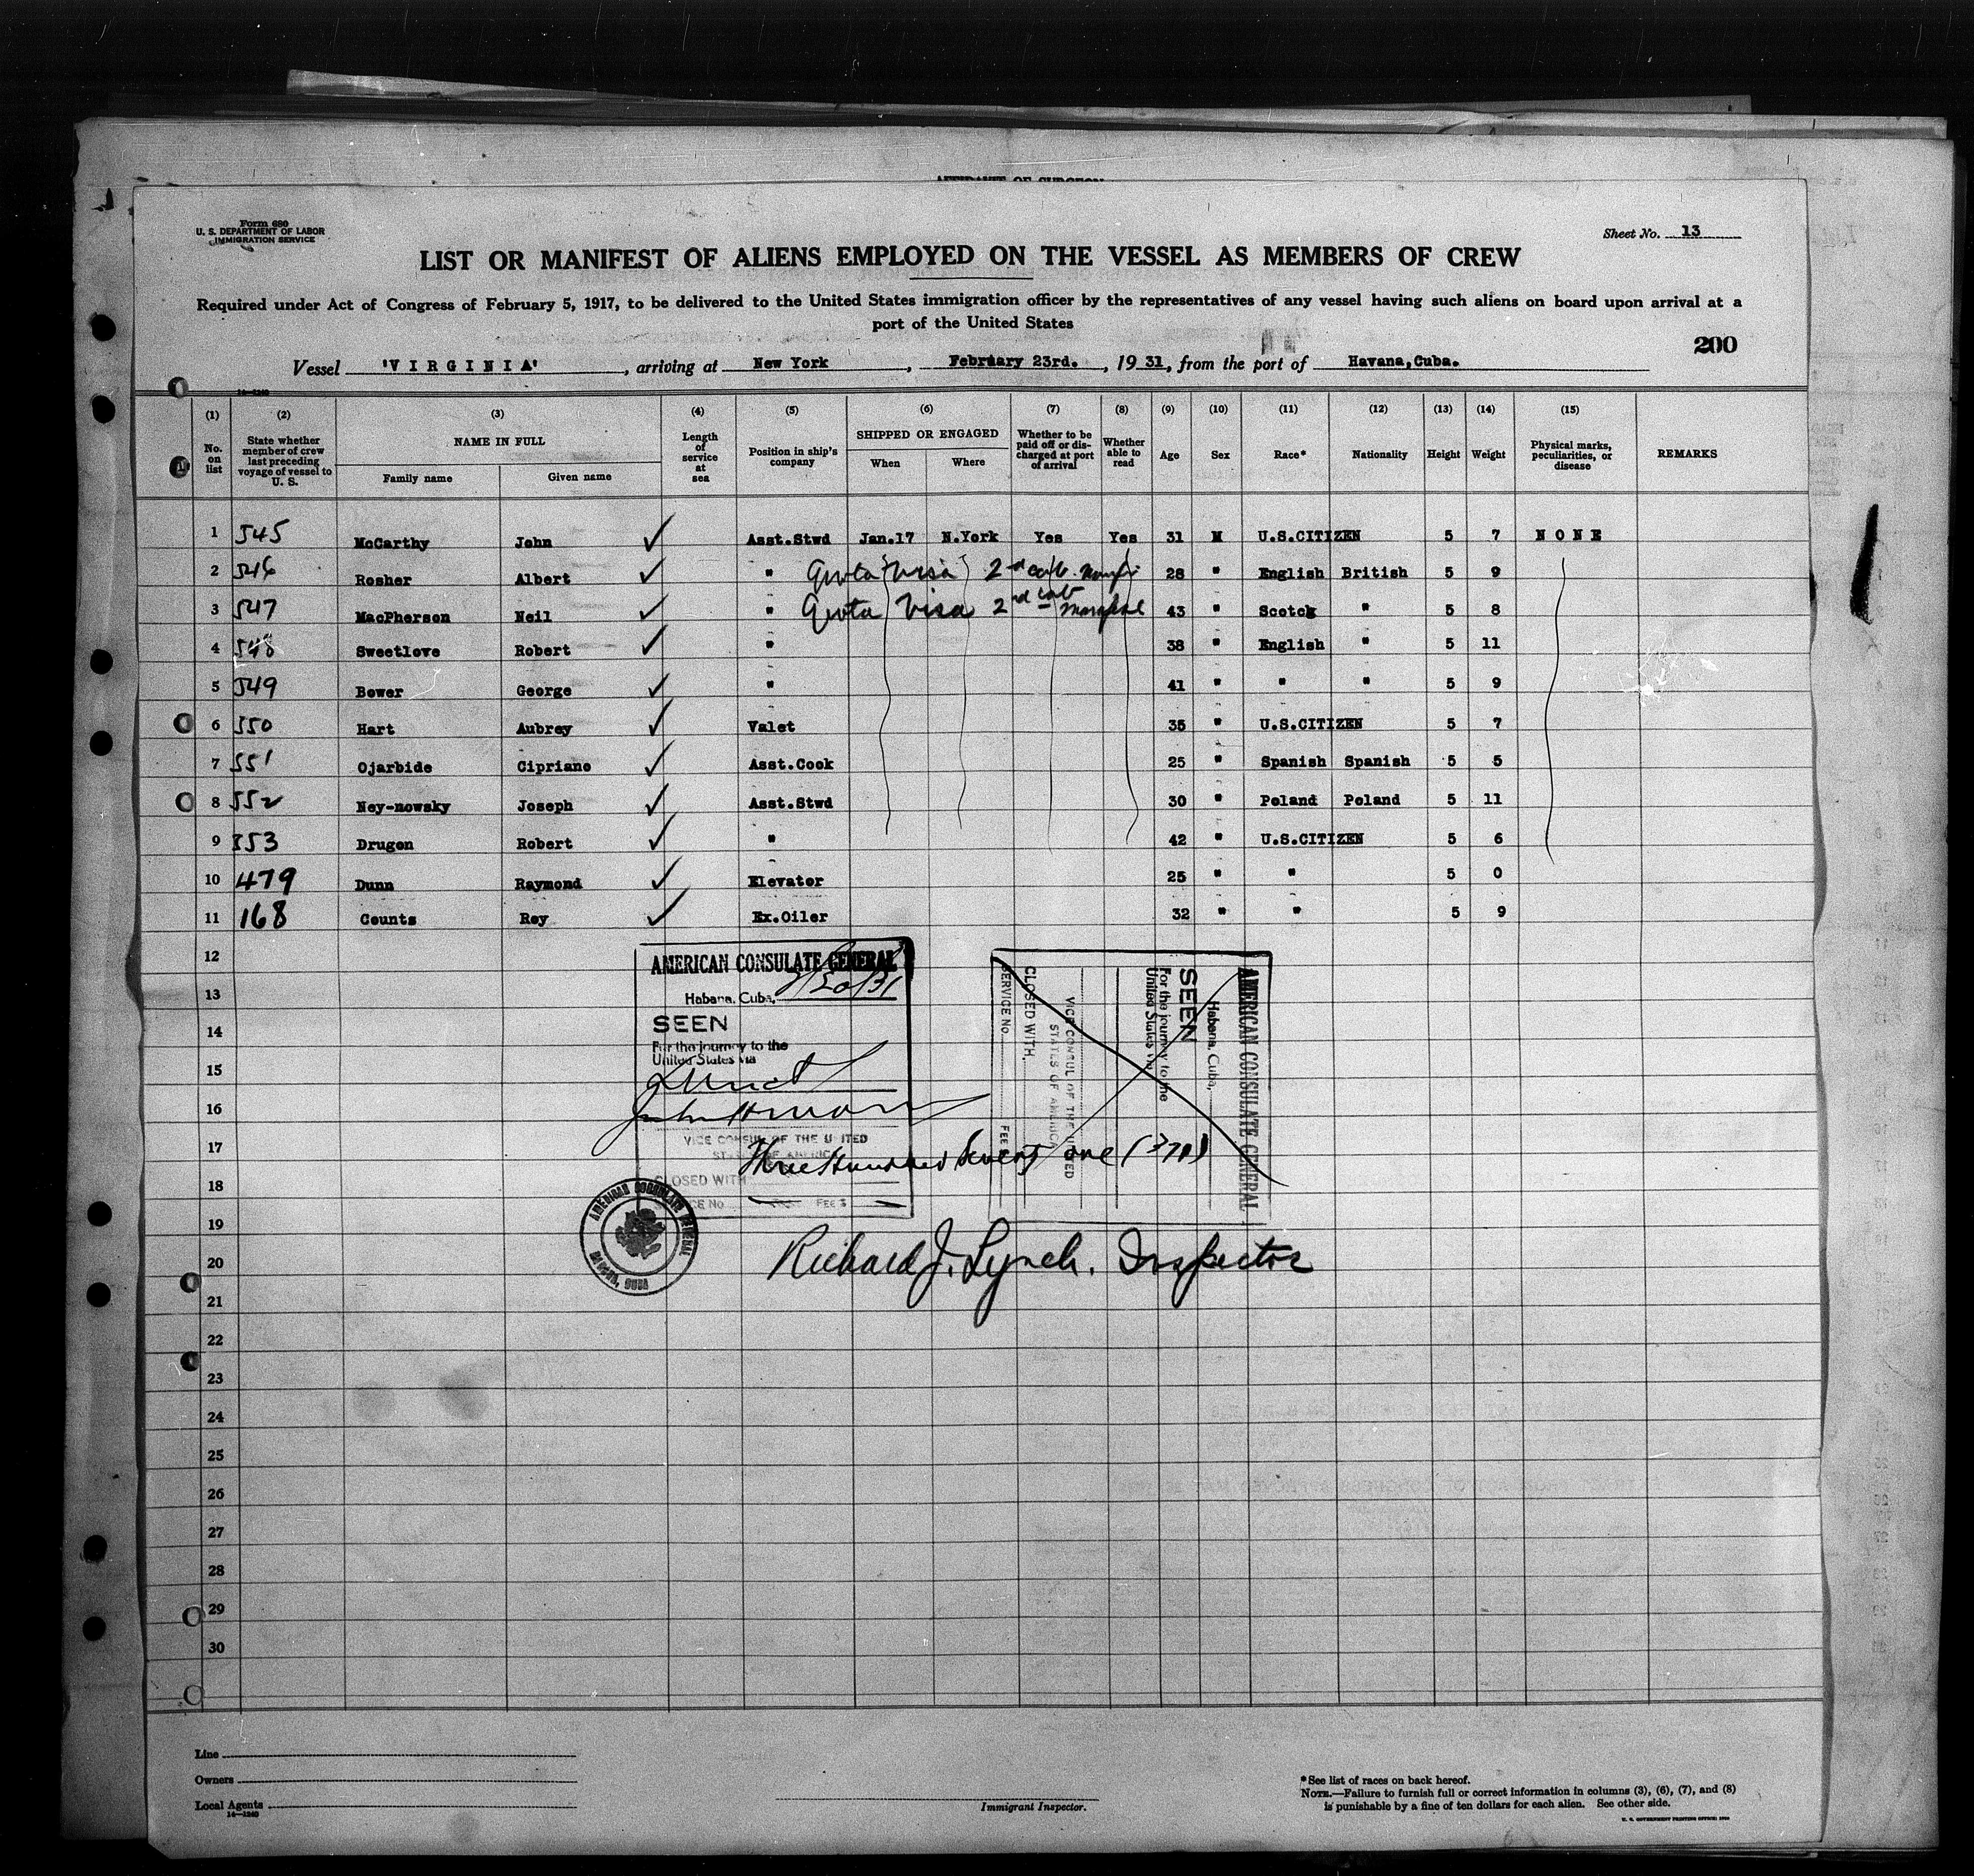 AFFIDAVIT OF SURGEON
Form 680
U. S. DEPARTMENT OF LABOR
IMMIGRATION SERVICE
Sheet No. 13
LIST OR MANIFEST OF ALIENS EMPLOYED ON THE VESSEL AS MEMBERS OF CREW
Required under Act of Congress of February 5, 1917, to be delivered to the United States immigration officer by the representatives of any vessel having such aliens on board upon arrival at a
port of the United States
200
Vessel 'VIRGINIA', arriving at New York, February 23rd., 1931, from the port of Havana,Cuba.
14—1240
(1) (2) (3) (4) (5) (6) (7) (8) (9) (10) (11) (12) (13) (14) (15)
No. on list
State whether member of crew last preceding voyage of vessel to U. S.
NAME IN FULL
Family name
Given name
Length of service at sea
Position in ship's company
SHIPPED OR ENGAGED
When
Where
Whether to be paid off or discharged at port of arrival
Whether able to read
Age
Sex
Race*
Nationality
Height
Weight
Physical marks, peculiarities, or disease
REMARKS
1 545 McCarthy John ✓ Asst.Stwd Jan.17 N.York Yes Yes 31 M U.S.CITIZEN 5 7 NONE
2 546 Rosher Albert ✓ " Quota Visa 2nd cab. 28 " English British 5 9
3 547 MacPherson Neil ✓ " Quota Visa 2nd cab 43 " Scotch " 5 8
4 548 Sweetlove Robert ✓ " 38 " English " 5 11
5 549 Bower George ✓ " 41 " " " 5 9
6 550 Hart Aubrey ✓ Valet 35 " U.S.CITIZEN 5 7
7 551 Ojarbide Cipriano ✓ Asst.Cook 25 " Spanish Spanish 5 5
8 552 Ney-nowsky Joseph ✓ Asst.Stwd 30 " Poland Poland 5 11
9 553 Drugon Robert ✓ " 42 " U.S.CITIZEN 5 6
10 479 Dunn Raymond ✓ Elevator 25 " " 5 0
11 168 Counts Roy ✓ Ex.Oiler 32 " " 5 9
12
13
14
15
16
17
18
19
20
21
22
23
24
25
26
27
28
29
30
AMERICAN CONSULATE GENERAL
Habana, Cuba, 2/20/31
SEEN
For the journey to the
United States via
direct
VICE CONSUL OF THE UNITED
STATES OF AMERICA
CLOSED WITH
SERVICE No. FEE $
AMERICAN CONSULATE GENERAL
Habana, Cuba,
SEEN
For the journey to the
United States via
VICE CONSUL OF THE UNITED
STATES OF AMERICA
CLOSED WITH
SERVICE No. FEE
Three Hundred Seventy one (371)
AMERICAN CONSULATE GENERAL
HABANA, CUBA
Richard J. Lynch. Inspector
Line
Owners
Local Agents
14—1240
Immigrant Inspector.
*See list of races on back hereof.
NOTE.—Failure to furnish full or correct information in columns (3), (6), (7), and (8)
is punishable by a fine of ten dollars for each alien. See other side.